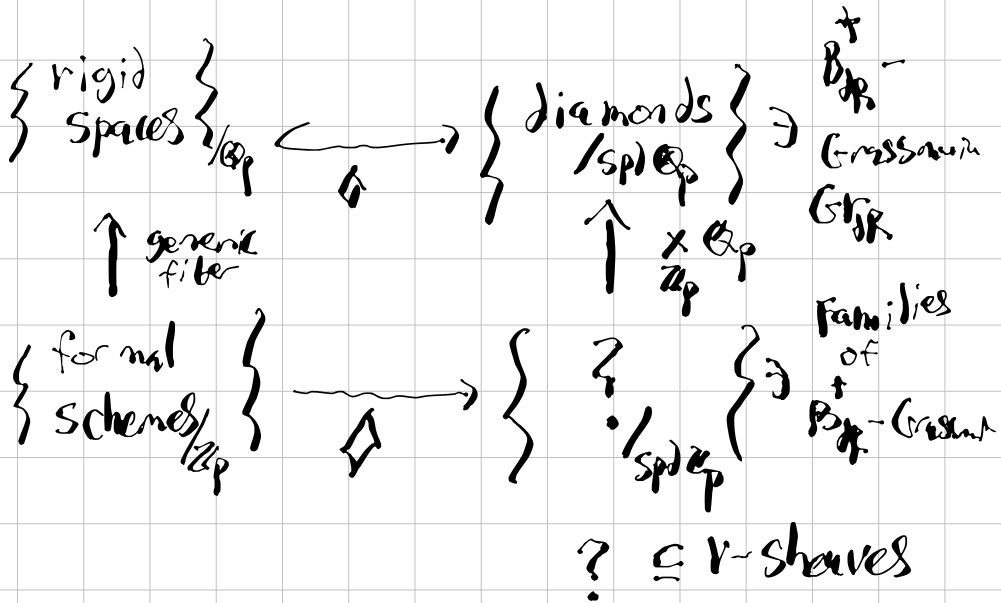 { rigid spaces }/ℚp
◊
{ diamonds /spd ℚp } ∋ B⁺dR -
Grassmannian
GrdR
↑ generic fiber
↑ × ℤp ℚp
{ formal schemes/ℤp }
◊
{ ? /spd ℤp } ∋ Families
of
B⁺dR - Grassmann
? ⊆ v-sheaves